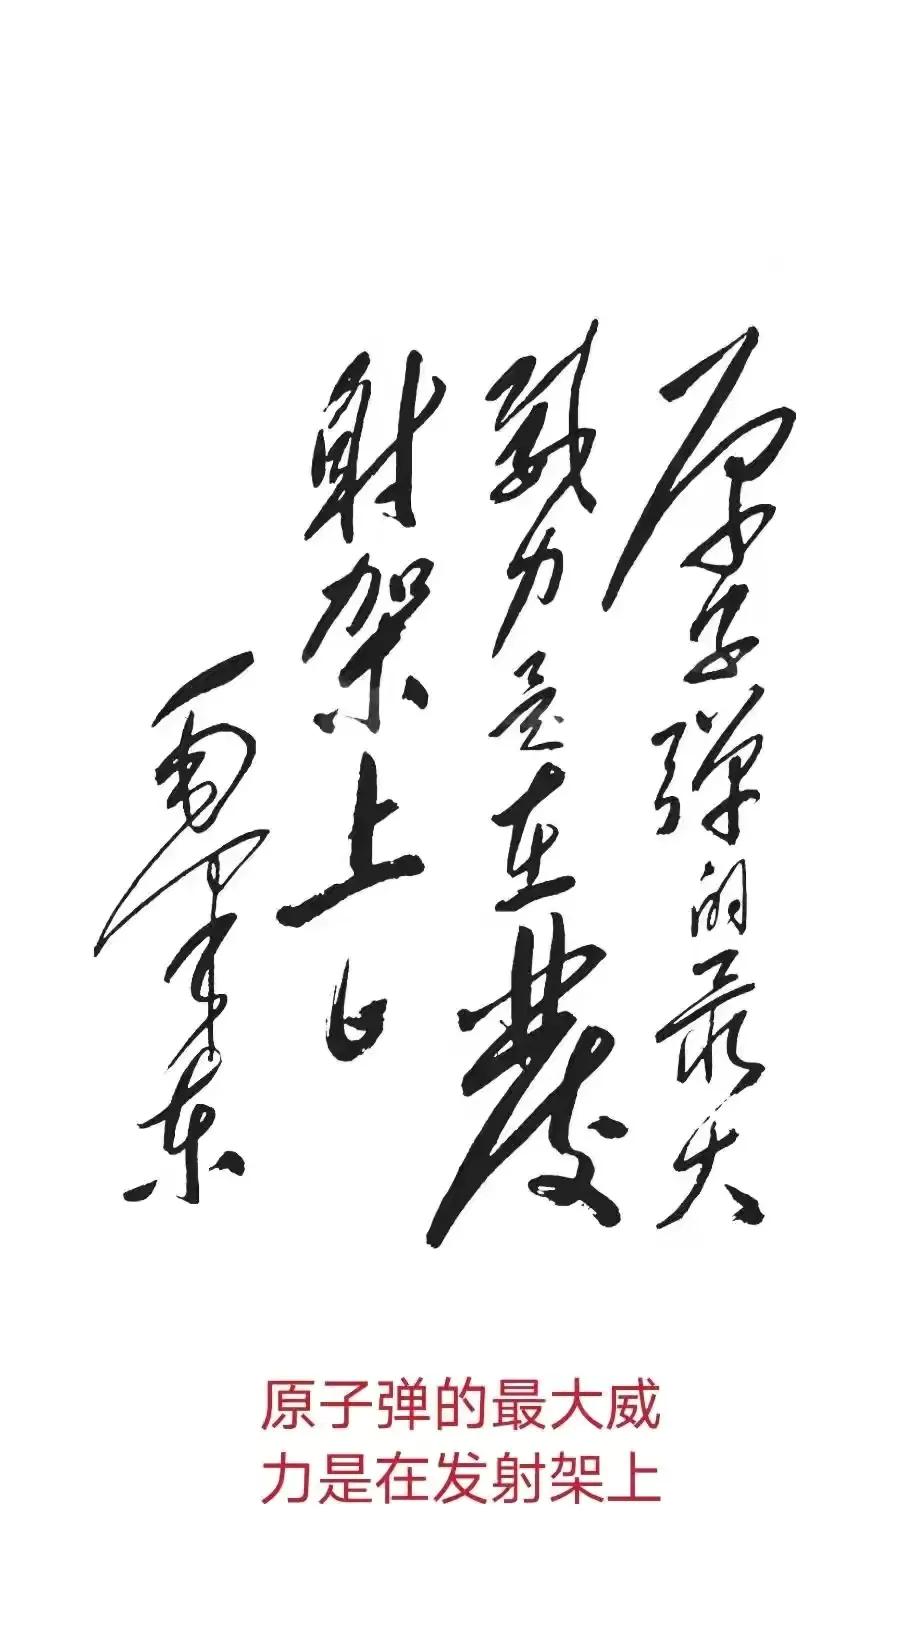 原子弹的最大
威力是在發
射架上
毛泽东
原子弹的最大威
力是在发射架上